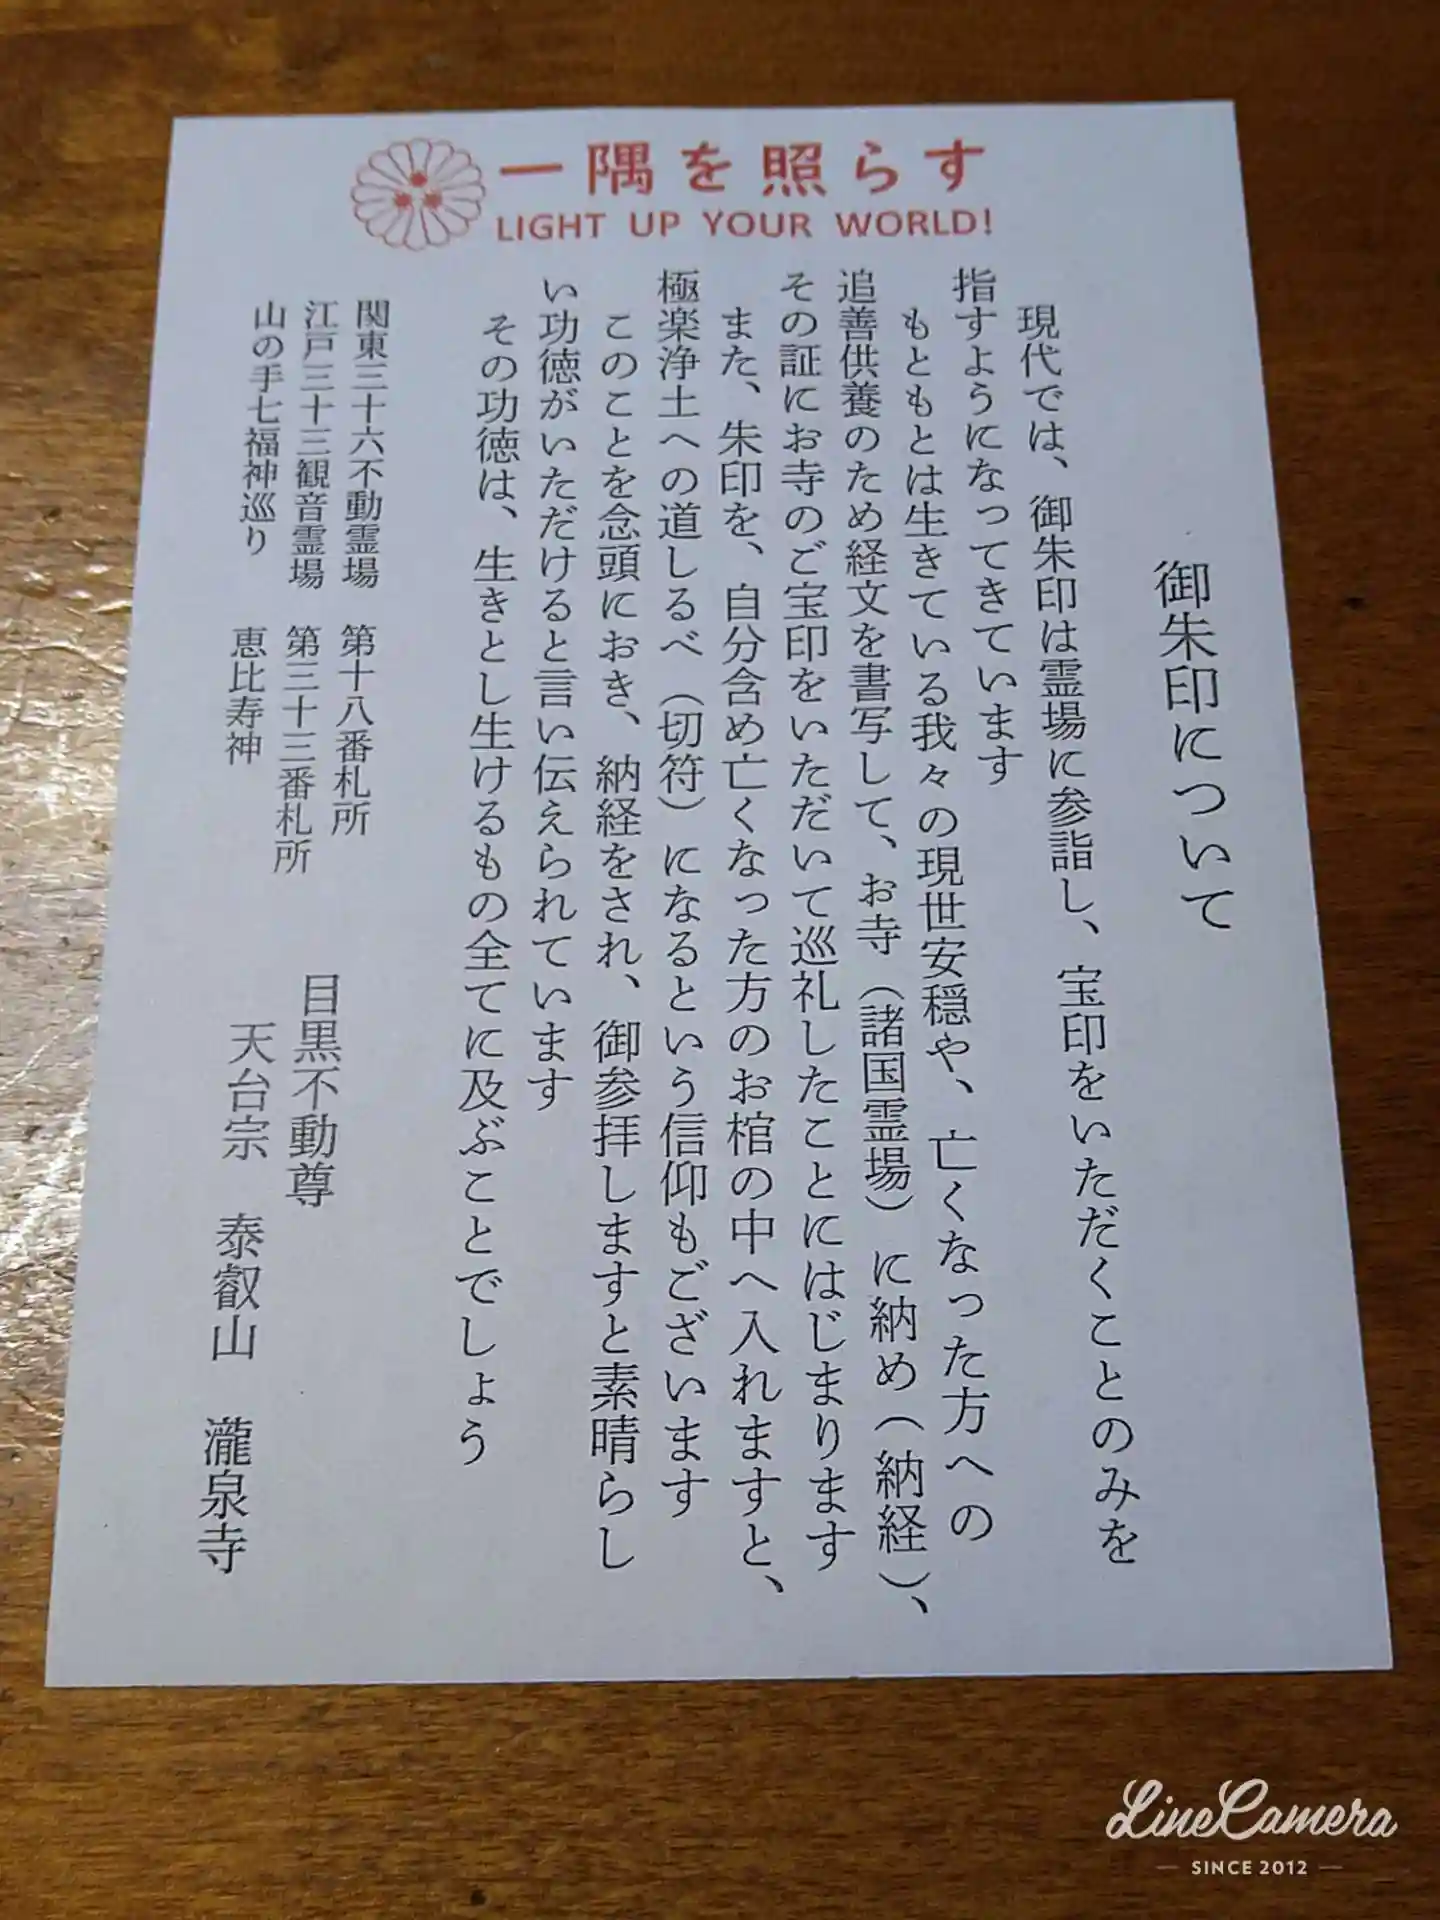 一隅を照らす
LIGHT UP YOUR WORLD!
御朱印について
現代では、御朱印は霊場に参詣し、宝印をいただくことのみを
指すようになってきています
もともとは生きている我々の現世安穏や、亡くなった方への
追善供養のため経文を書写して、お寺（諸国霊場）に納め（納経）、
その証にお寺のご宝印をいただいて巡礼したことにはじまります
また、朱印を、自分含め亡くなった方のお棺の中へ入れますと、
極楽浄土への道しるべ（切符）になるという信仰もございます
このことを念頭におき、納経をされ、御参拝しますと素晴らし
い功徳がいただけると言い伝えられています
その功徳は、生きとし生けるもの全てに及ぶことでしょう
関東三十六不動霊場　第十八番札所
江戸三十三観音霊場　第三十三番札所
山の手七福神巡り　恵比寿神
目黒不動尊
天台宗　泰叡山　瀧泉寺
LineCamera
SINCE 2012